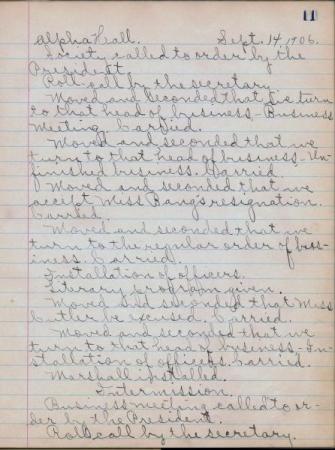 11
Alpha Hall. Sept. 14, 1906.
Society called to order by the
President.
Roll-call by the secretary.
Moved and seconded that we turn
to that head of business - Business
Meeting. Carried.
Moved and seconded that we
turn to that head of business - Un-
finished business. Carried.
Moved and seconded that we
accept Miss Bang's resignation.
Carried.
Moved and seconded that we
turn to the regular order of bus-
iness. Carried.
Installation of officers.
Literary program given.
Moved and seconded that Miss
Cutler be excused. Carried.
Moved and seconded that we
turn to that head of business - In-
stallation of officers. Carried.
Marshall installed.
Intermission.
Business meeting called to or-
der by the President.
Roll call by the secretary.